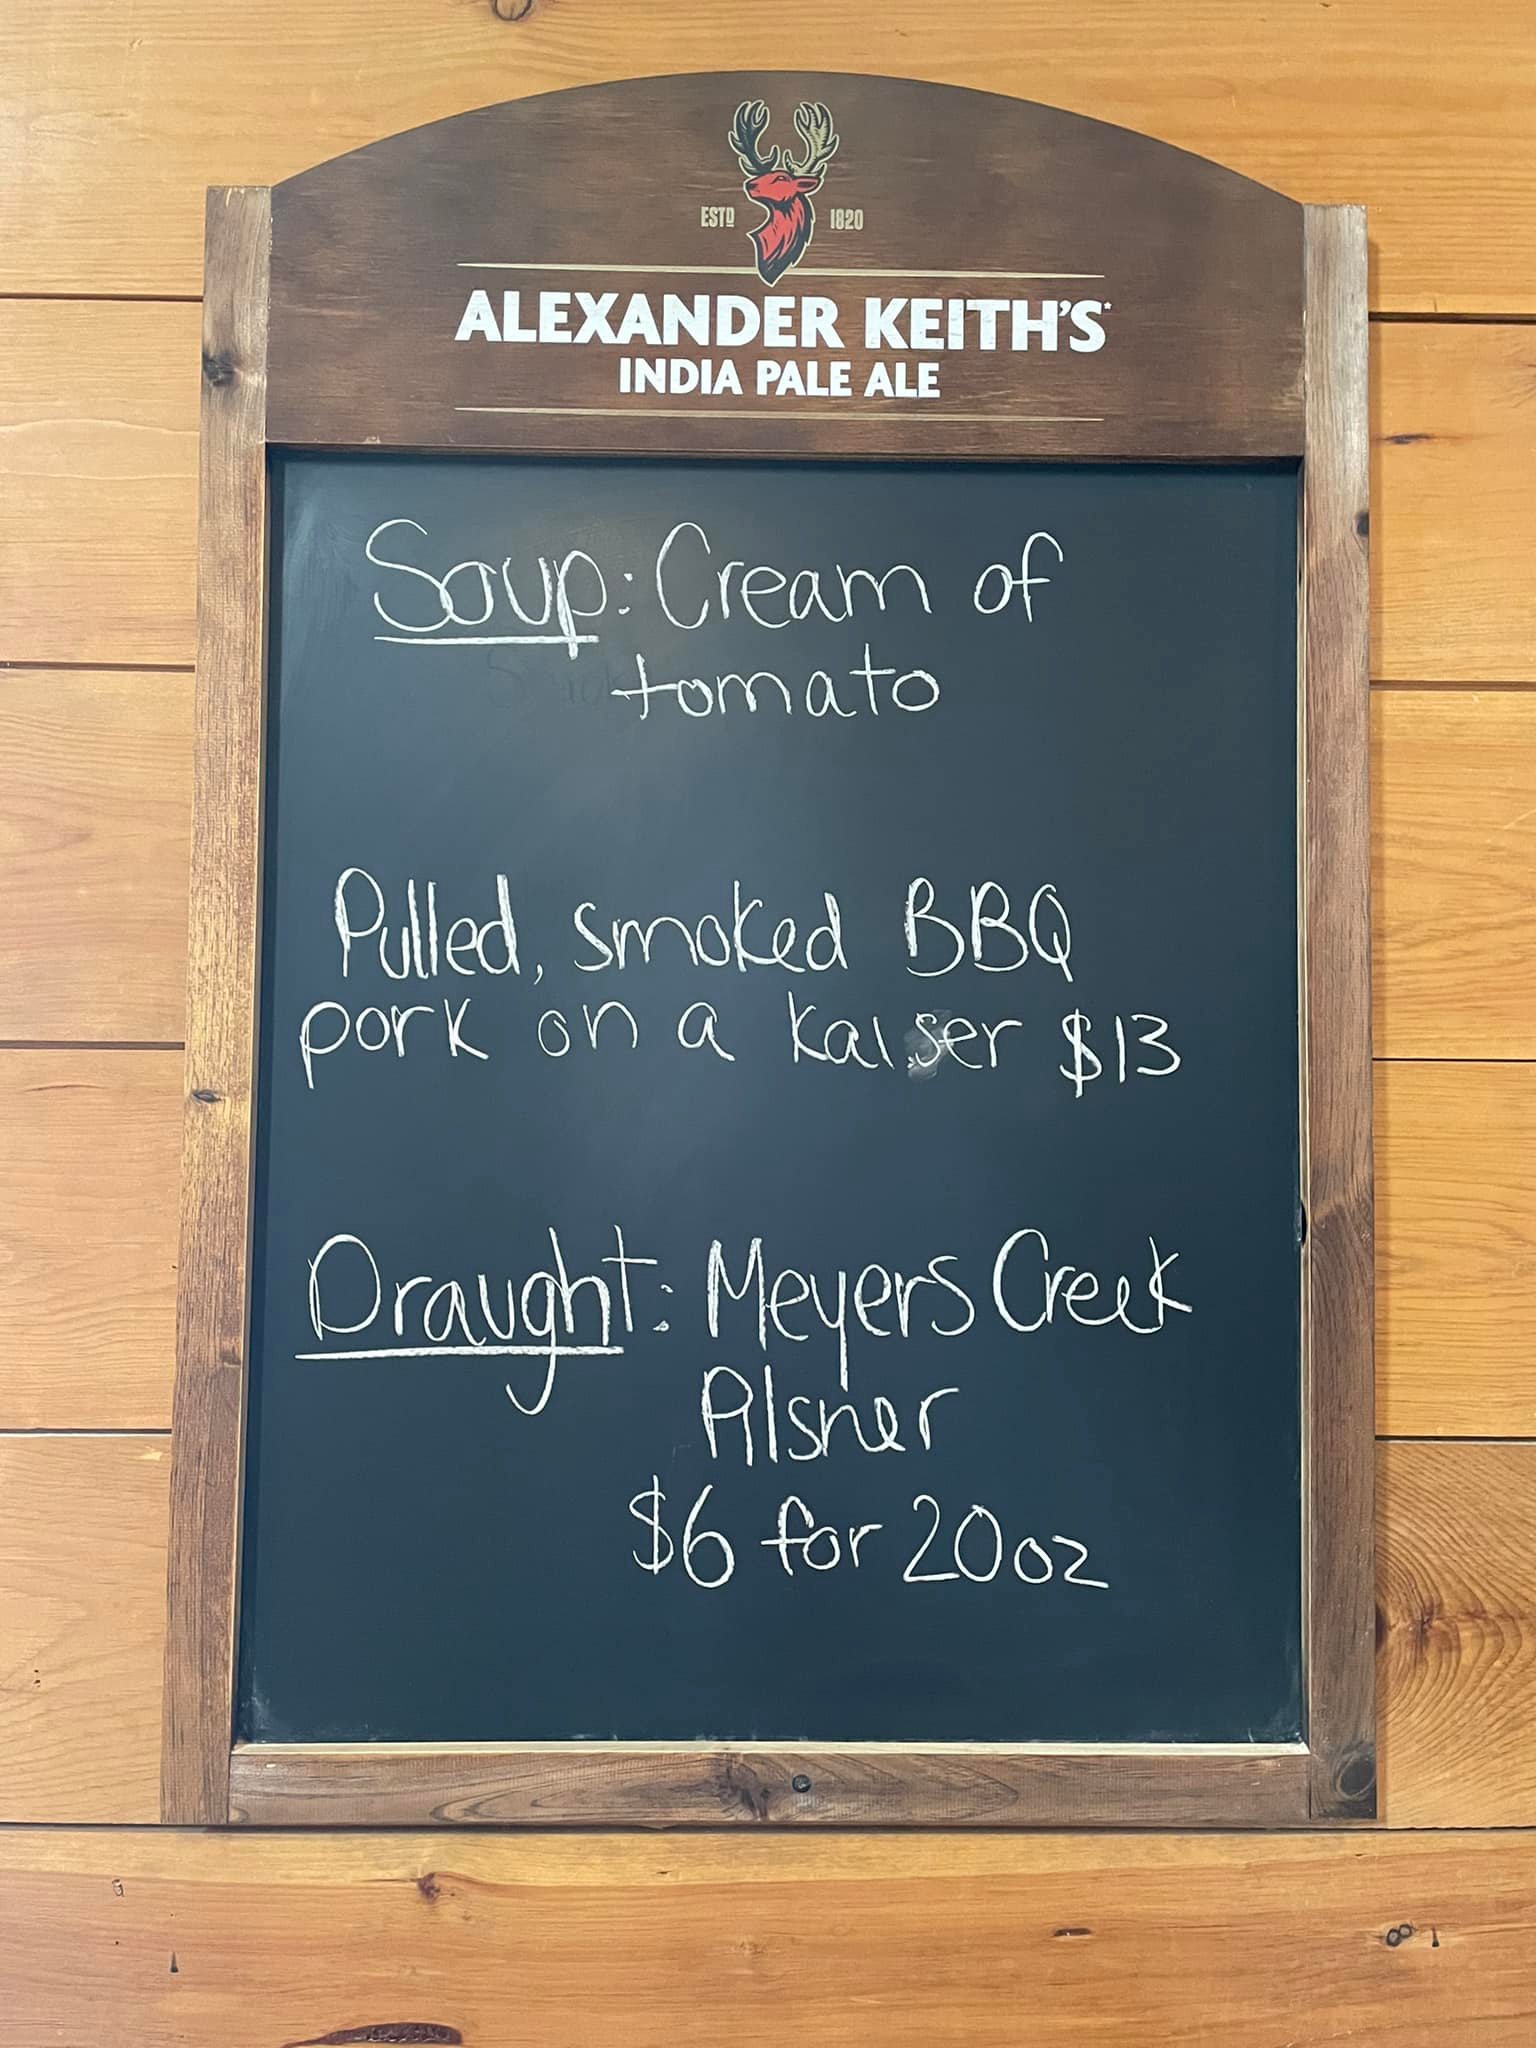 ESTD 1820
ALEXANDER KEITH'S*
INDIA PALE ALE
Soup: Cream of
tomato
Pulled, smoked BBQ
pork on a kaiser $13
Draught: Meyers Creek
Pilsner
$6 for 20oz